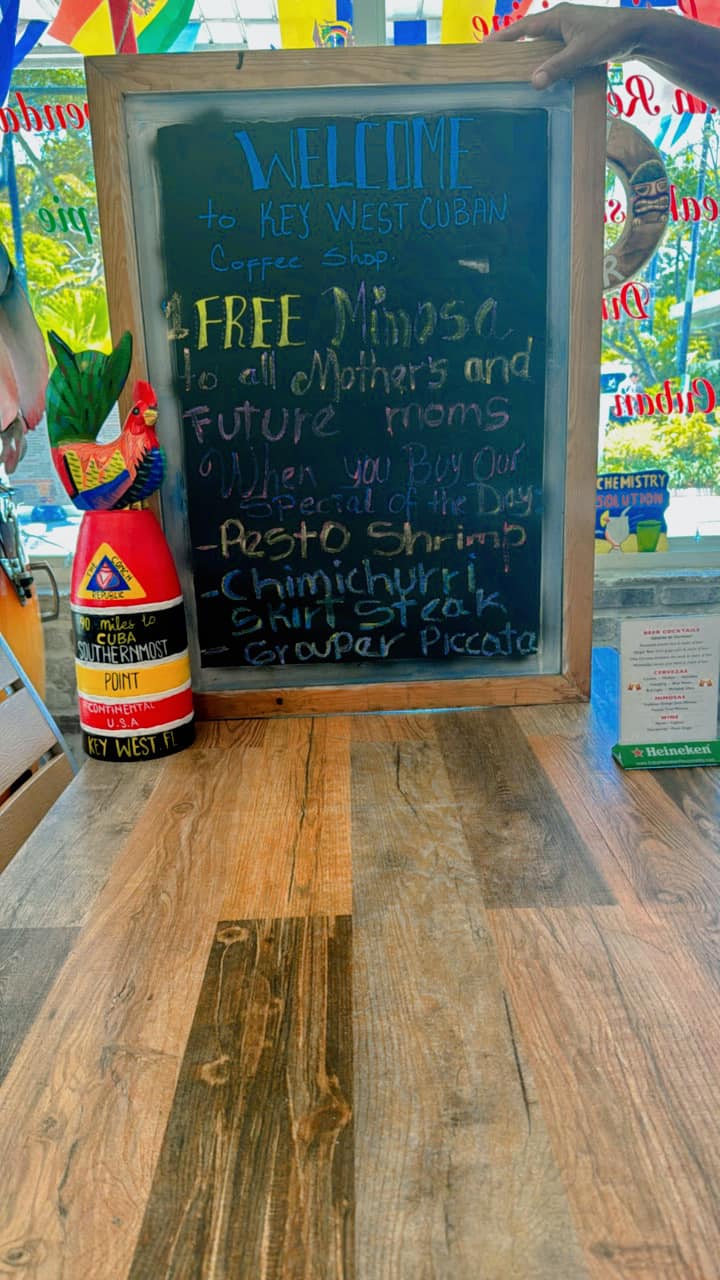 WELCOME
to KEY WEST CUBAN
Coffee Shop.
1 FREE Mimosa
to all Mother's and
Future moms
When you Buy Our
Special of the Day:
-Pesto Shrimp
-Chimichurri
Skirt Steak
- Grouper Piccata
THE CONCH
REPUBLIC
90 miles to
CUBA
SOUTHERNMOST
POINT
CONTINENTAL
U.S.A
KEY WEST, FL
pie
Cuban
CHEMISTRY
SOLUTION
BEER COCKTAILS
CERVEZAS
MIMOSAS
WINE
Heineken